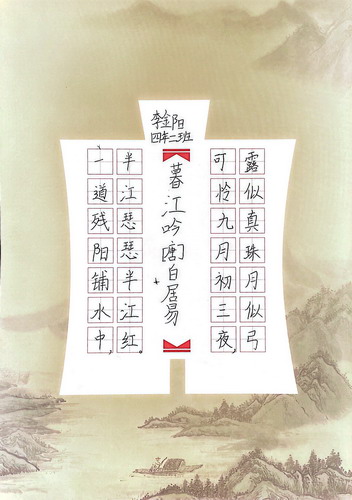 李金阳
四年二班
暮江吟 唐 白居易
一道残阳铺水中,
半江瑟瑟半江红。
可怜九月初三夜,
露似真珠月似弓